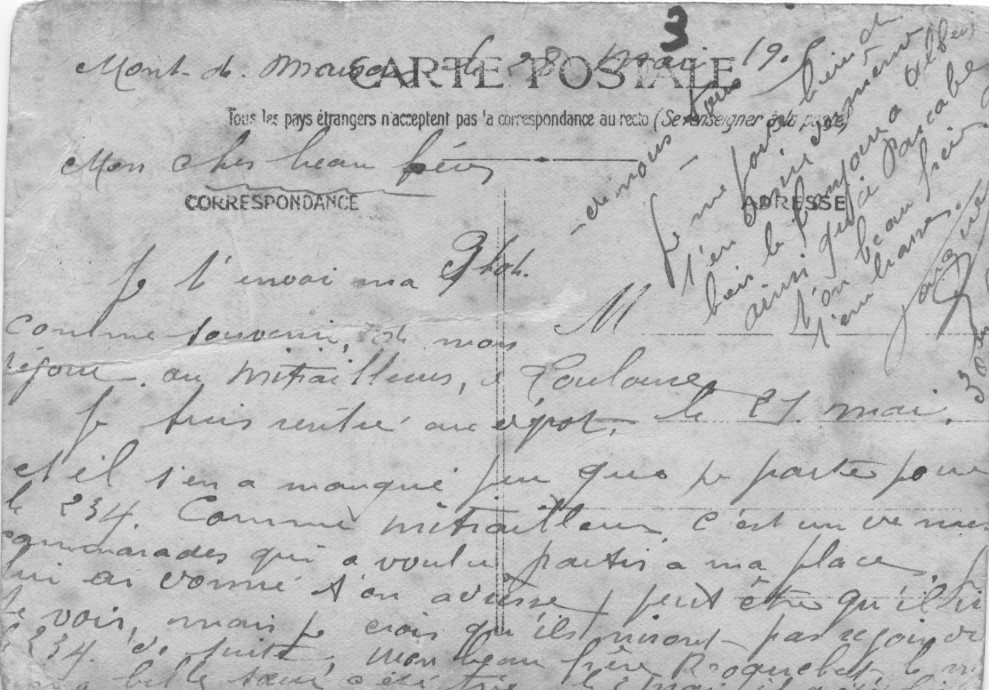 3
Mont-d. Marsan le 28 mai 19
CARTE POSTALE
Tous les pays étrangers n'acceptent pas la correspondance au recto (Se renseigner à la poste)
Mon cher beau frère
CORRESPONDANCE
ADRESSE
Je t'envoi ma Phot.
comme souvenir, de mon
séjour. au mitrailleurs, a Toulouse,
M
Je suis rentré au dépot, le 27. mai.
et il s'en a manqué peu que je parte pour
le 234. Comme mitrailleur c'est un de mes
cammarades qui a voulu partir a ma place
lui ai donné t'on adresse, peut être qu'il
te voir, mais je crois qu'ils niront pas rejoindre
le 234. de suite, mon beau frère Roquebert le
belle sœur
de nous tous
Je me porte bien et
t'en désire de même
bien le bonjour a Albert
ainsi qu'a Pascabe
t'on beau frère
t'embrasse.